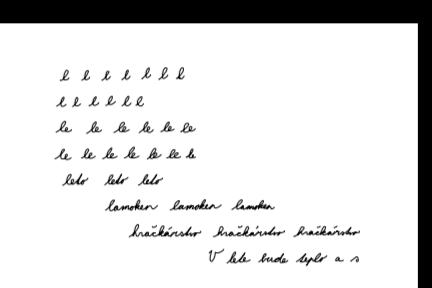 l l l l l l l
l l l l l l
le le le le le le
le le le le le le le
leto leto leto
lamohen lamohen lamohen
hračkárstvo hračkárstvo hračkárstvo
V lete bude teplo a s